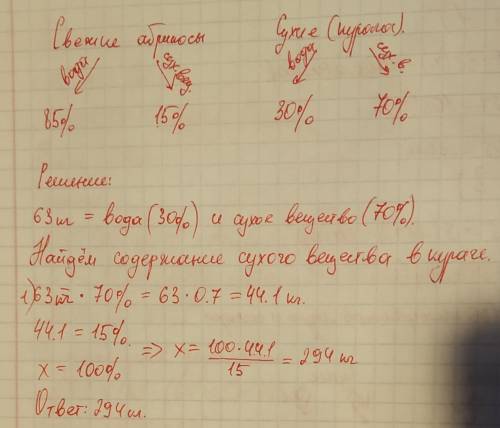 Свежие абрикосы Сухие (курага).
вода сух. вещ. вода сух. в.
85% 15% 30% 70%
Решение:
63 кг = вода (30%) и сухое вещество (70%).
Найдём содержание сухого вещества в кураге.
1) 63 кг · 70% = 63 · 0.7 = 44.1 кг.
44.1 = 15%
x = 100% => x = 100·44.1 / 15 = 294 кг
Ответ: 294 кг.